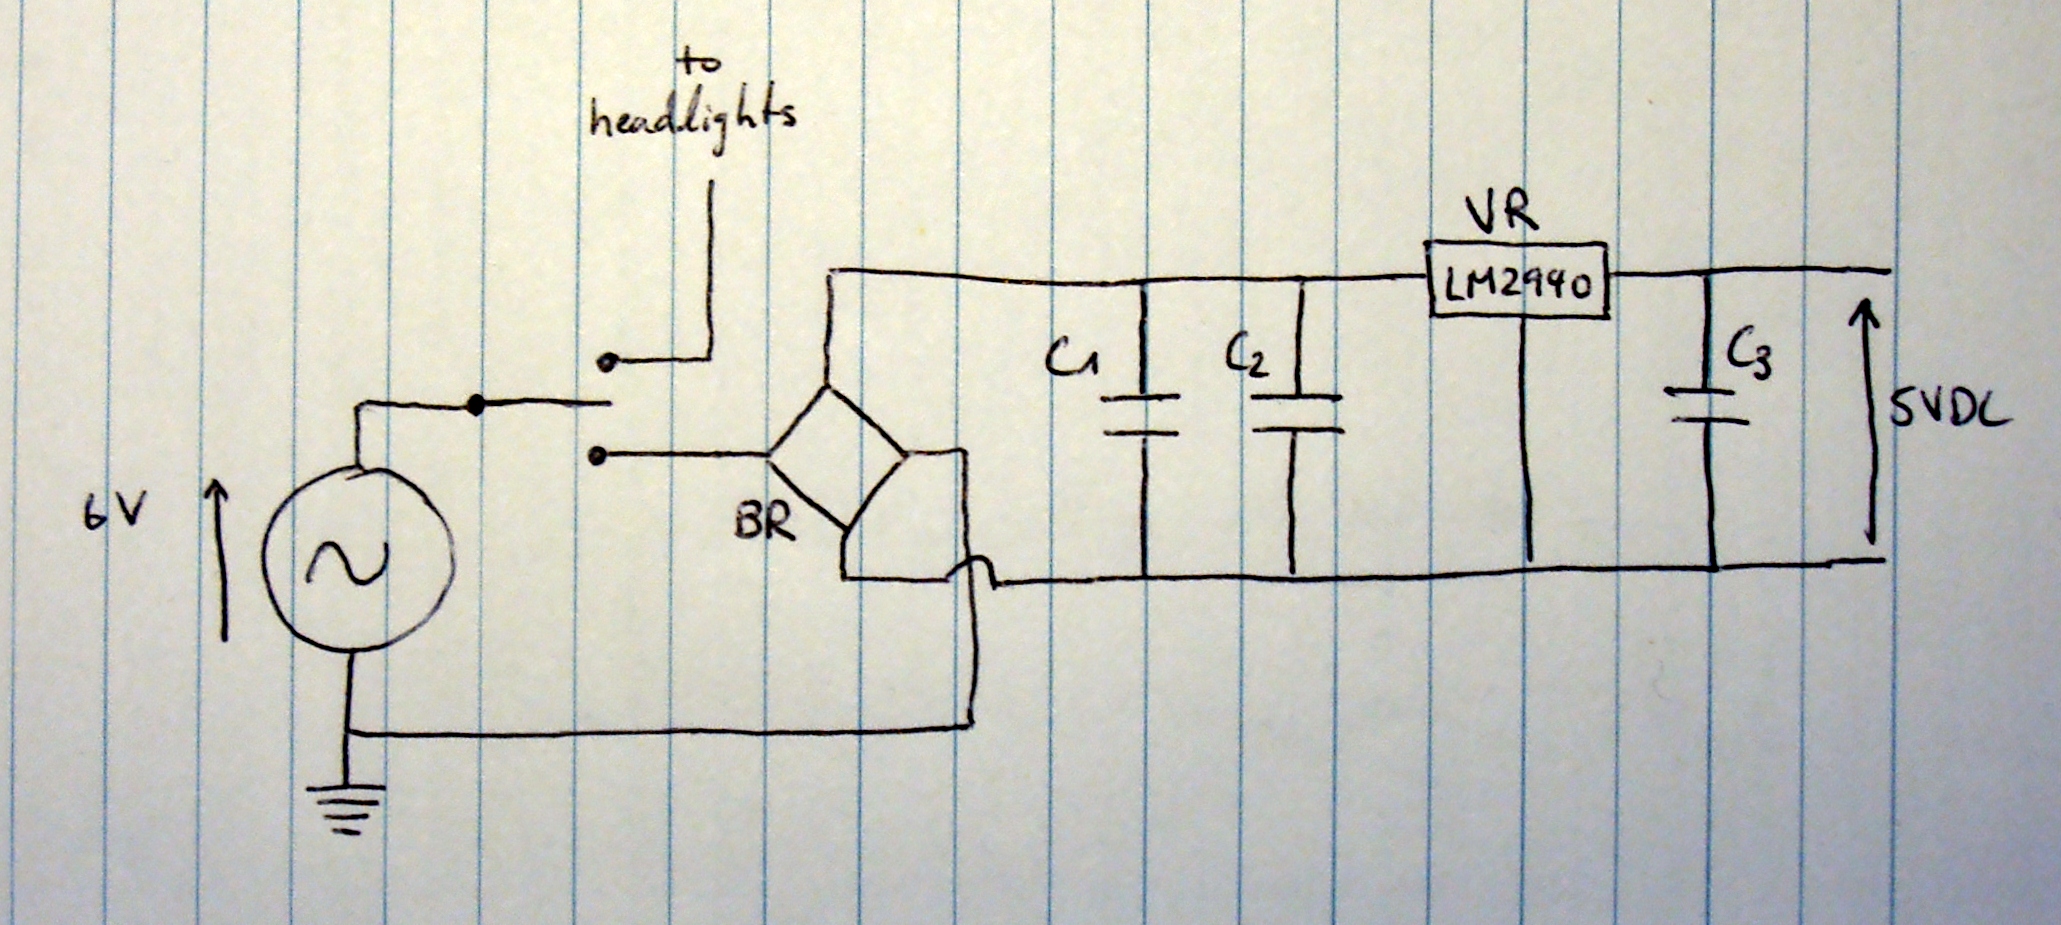 to
headlights
VR
LM2940
C1
C2
C3
5VDC
6V
BR